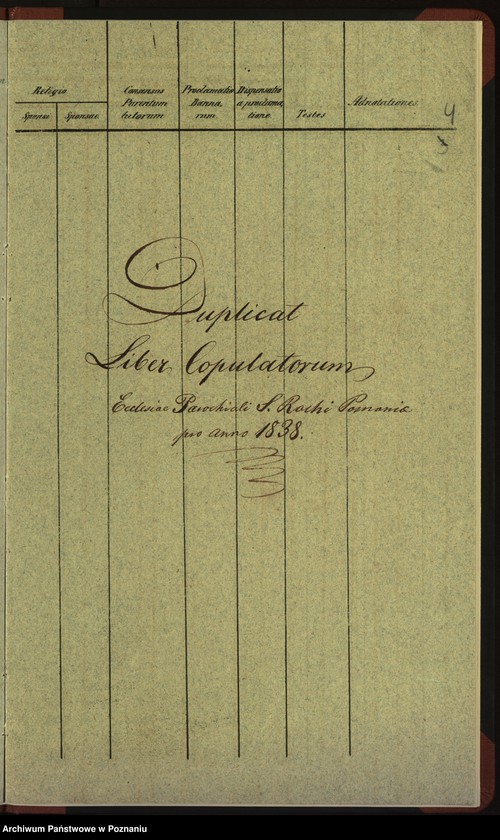 Religio
Sponsi Sponsae
Consensus
Parentum
tutorum
Proclamatio
Banno,
rum
Dispensatio
a proclama,
tione
Testes
Adnotationes
4
Duplicat
Liber Copulatorum
Ecclesiae Parochiali S. Rochi Posnaniæ
pro anno 1838.
Archiwum Państwowe w Poznaniu